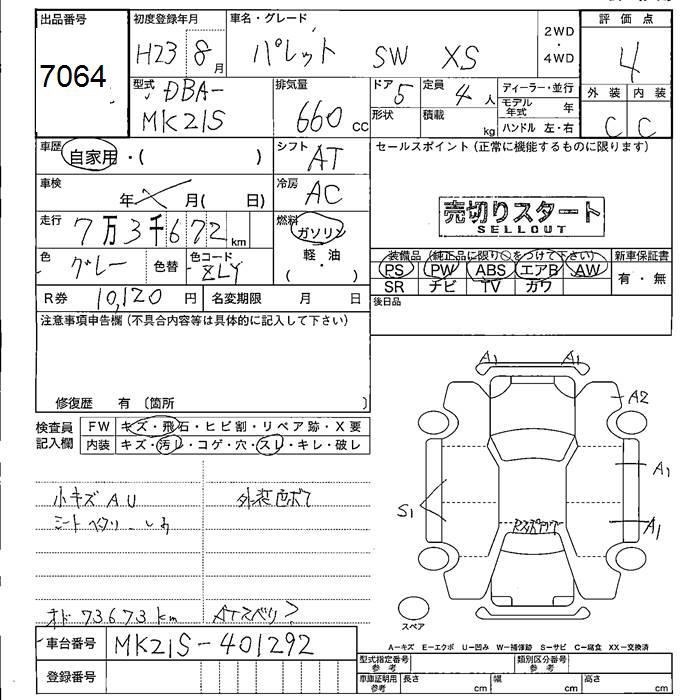 出品番号
7064
初度登録年月
H23 8月
車名・グレード
パレット SW XS
2WD
・
4WD
評価点
4
外装 内装
C C
型式
DBA-
MK21S
排気量
660 cc
ドア 5
形状
定員 4人
積載 kg
ディーラー・並行
モデル年式 年
ハンドル 左・右
車歴
自家用・( )
シフト
AT
車検
年 月( 日)
冷房
AC
走行
7万3千672km
燃料
ガソリン
軽・油
( )
色
グレー
色替
色コード
ZLY
R券 10,120円
名変期限 月 日
セールスポイント(正常に機能するものに限ります)
売切りスタート
SELLOUT
装備品(純正品に限り○をつけて下さい)
PS PW ABS エアB AW
SR ナビ TV カワ
新車保証書
有・無
後日品
注意事項申告欄(不具合内容等は具体的に記入して下さい)
修復歴 有〔箇所 〕
検査員
記入欄
FW キズ・飛石・ヒビ割・リペア跡・X要
内装 キズ・汚レ・コゲ・穴・スレ・キレ・破レ
小キズ A U
外装色ボケ
シート ヘタリ
オド 73673km
ATスベリ?
A1 A1
A2
A1
S1
A1
スペア
A-キズ E-エクボ U-凹み W-補修跡 S-サビ C-腐食 XX-交換済
車台番号 MK21S-401292
登録番号
型式指定番号
参考
類別区分番号
参考
車庫証明用
参考
長さ cm
幅 cm
高さ cm